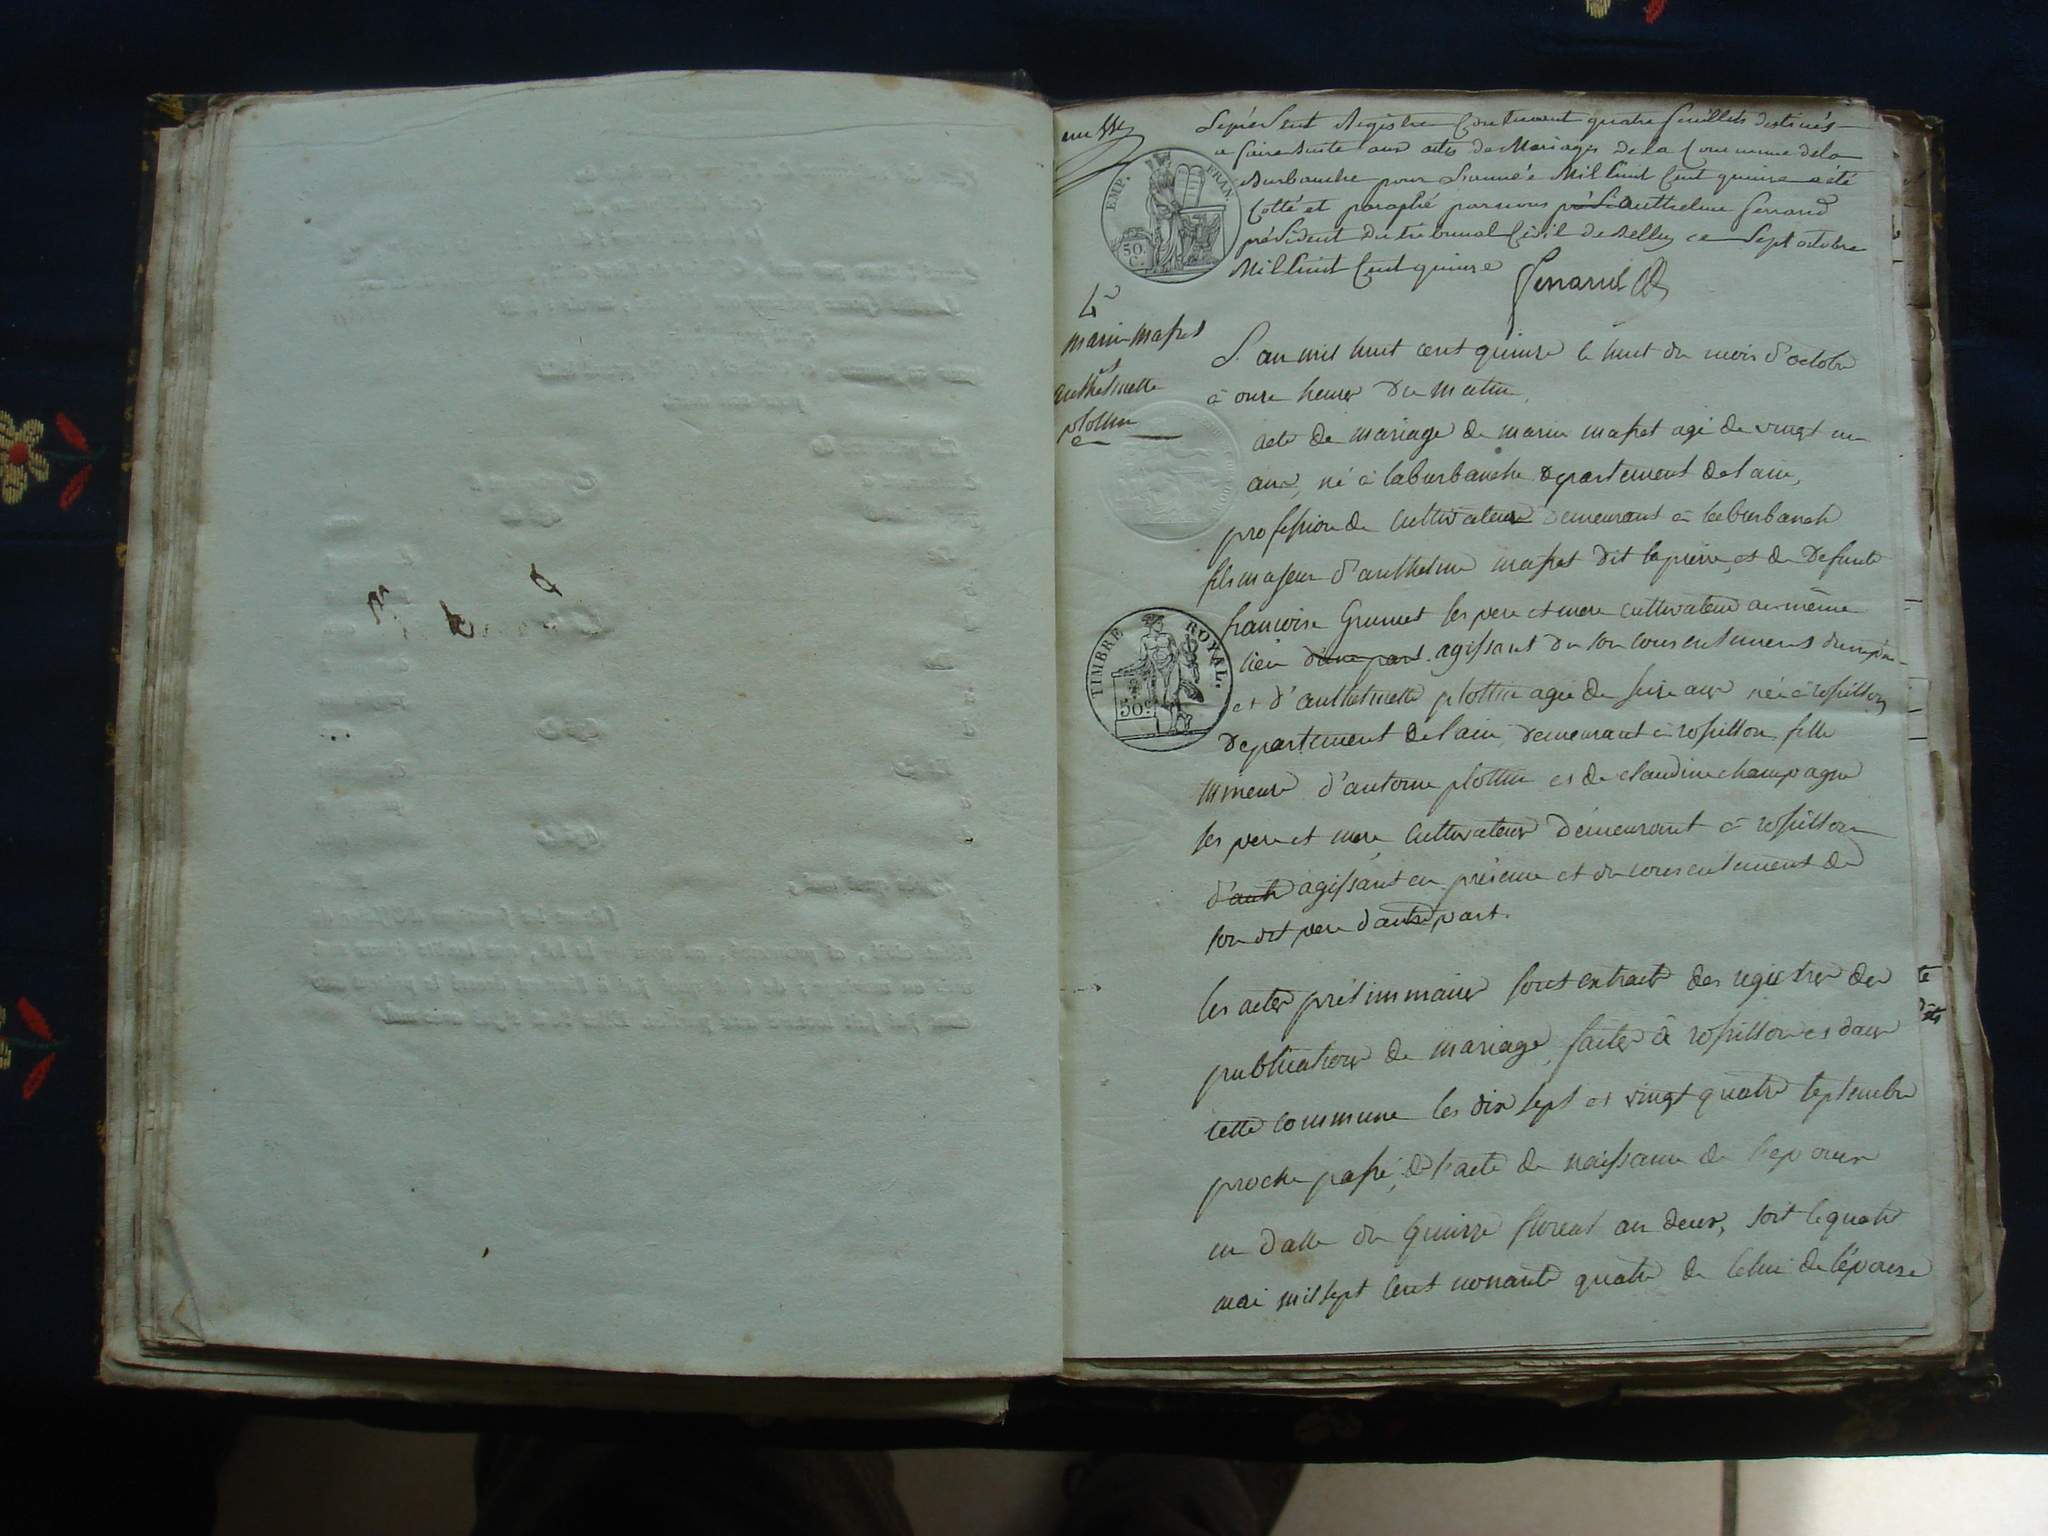 Le présent Registre Contenant quatre feuillets destinés
a faire Suite aux actes de Mariages de la Commune de la
Burbanche pour L'année Mil huit Cent quinze a été
Cotté et paraphé par nous Anthelme Ferrand
président du tribunal Civil de Belley ce Sept octobre
Mil huit Cent quinze
Ferrand
EMP. FRAN.
50 C.
4e
marin masset
et
anthelmette
plottin
L'an mil huit cent quinze le huit du mois d'octobre
à onze heures du matin,
acte de mariage de marin masset agé de vingt un
ans, né à laburbanche département de l'ain,
profession de cultivateur demeurant à laburbanche
fils majeur d'anthelme masset dit lapierre, et de Defunte
francoise Grumet ses pere et mere cultivateurs au même
lieu d'une part agissant du son consentement du
et d'anthelmette plottin agée de seize ans née à rossillon
departement de l'ain, demeurant à rossillon, fille
mineure d'antoine plottin et de claudine champagne
ses pere et mere cultivateurs demeurant à rossillon
d'autre agissant en présence et du consentement de
son dit pere d'autre part.
TIMBRE ROYAL.
50c
les actes préliminaires sont extraits des registres des
publications de mariage, faites à rossillon et dans
cette commune les dix sept et vingt quatre septembre
proche passé, de l'acte de naissance de l'epoux
en datte du quinze floreal an deux, soit le quatre
mai mil sept cent nonante quatre de celui de l'épouse